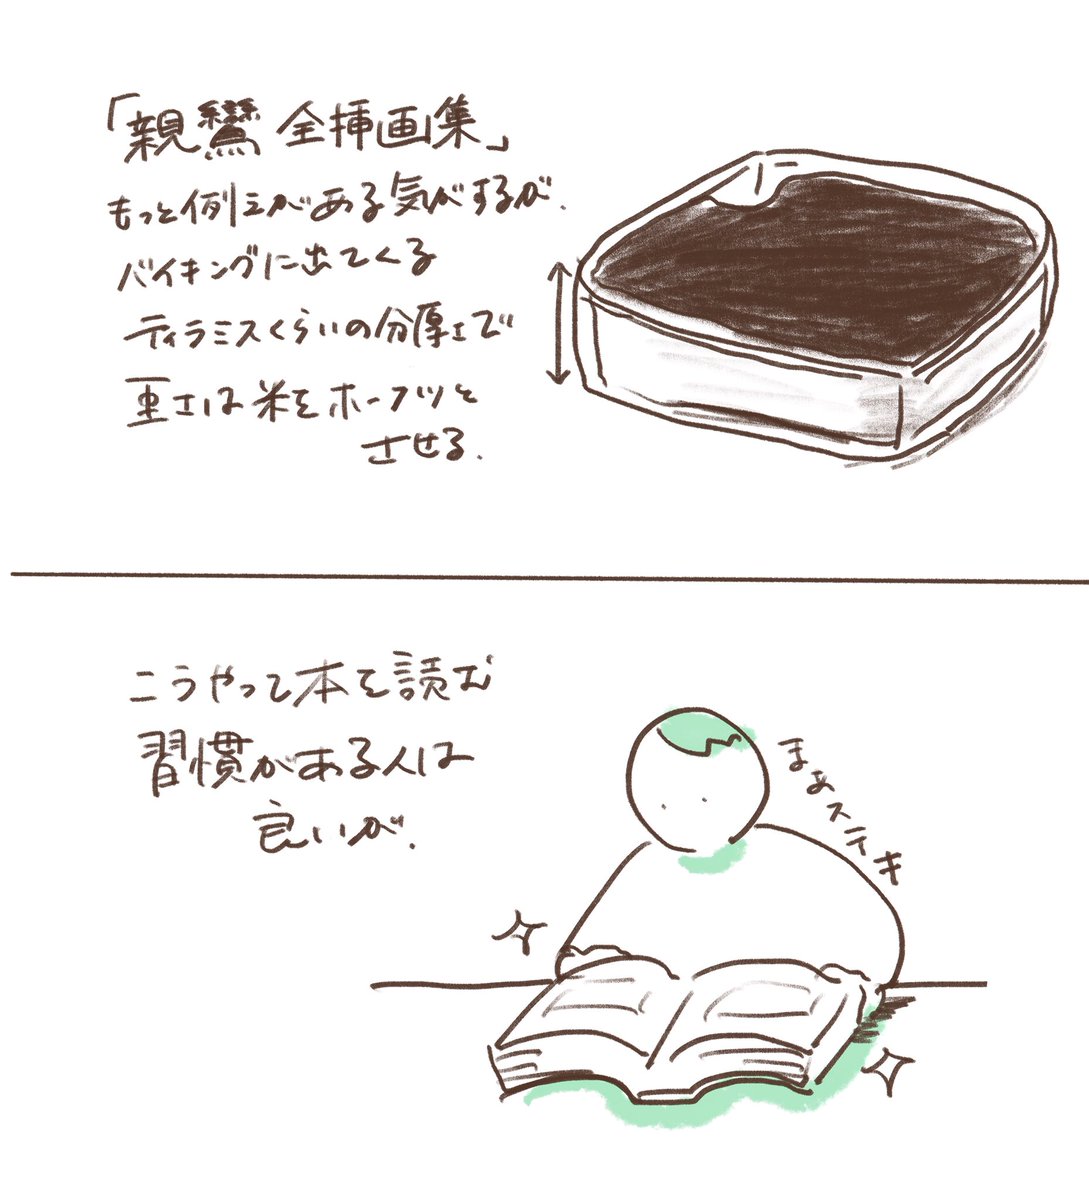 「親鸞 全挿画集」
もっと例えがある気がするが、
バイキングに出てくる
ティラミスくらいの分厚さで
重さは米をホーフツと
させる。
こうやって本を読む
習慣がある人は
良いが、
まあステキ